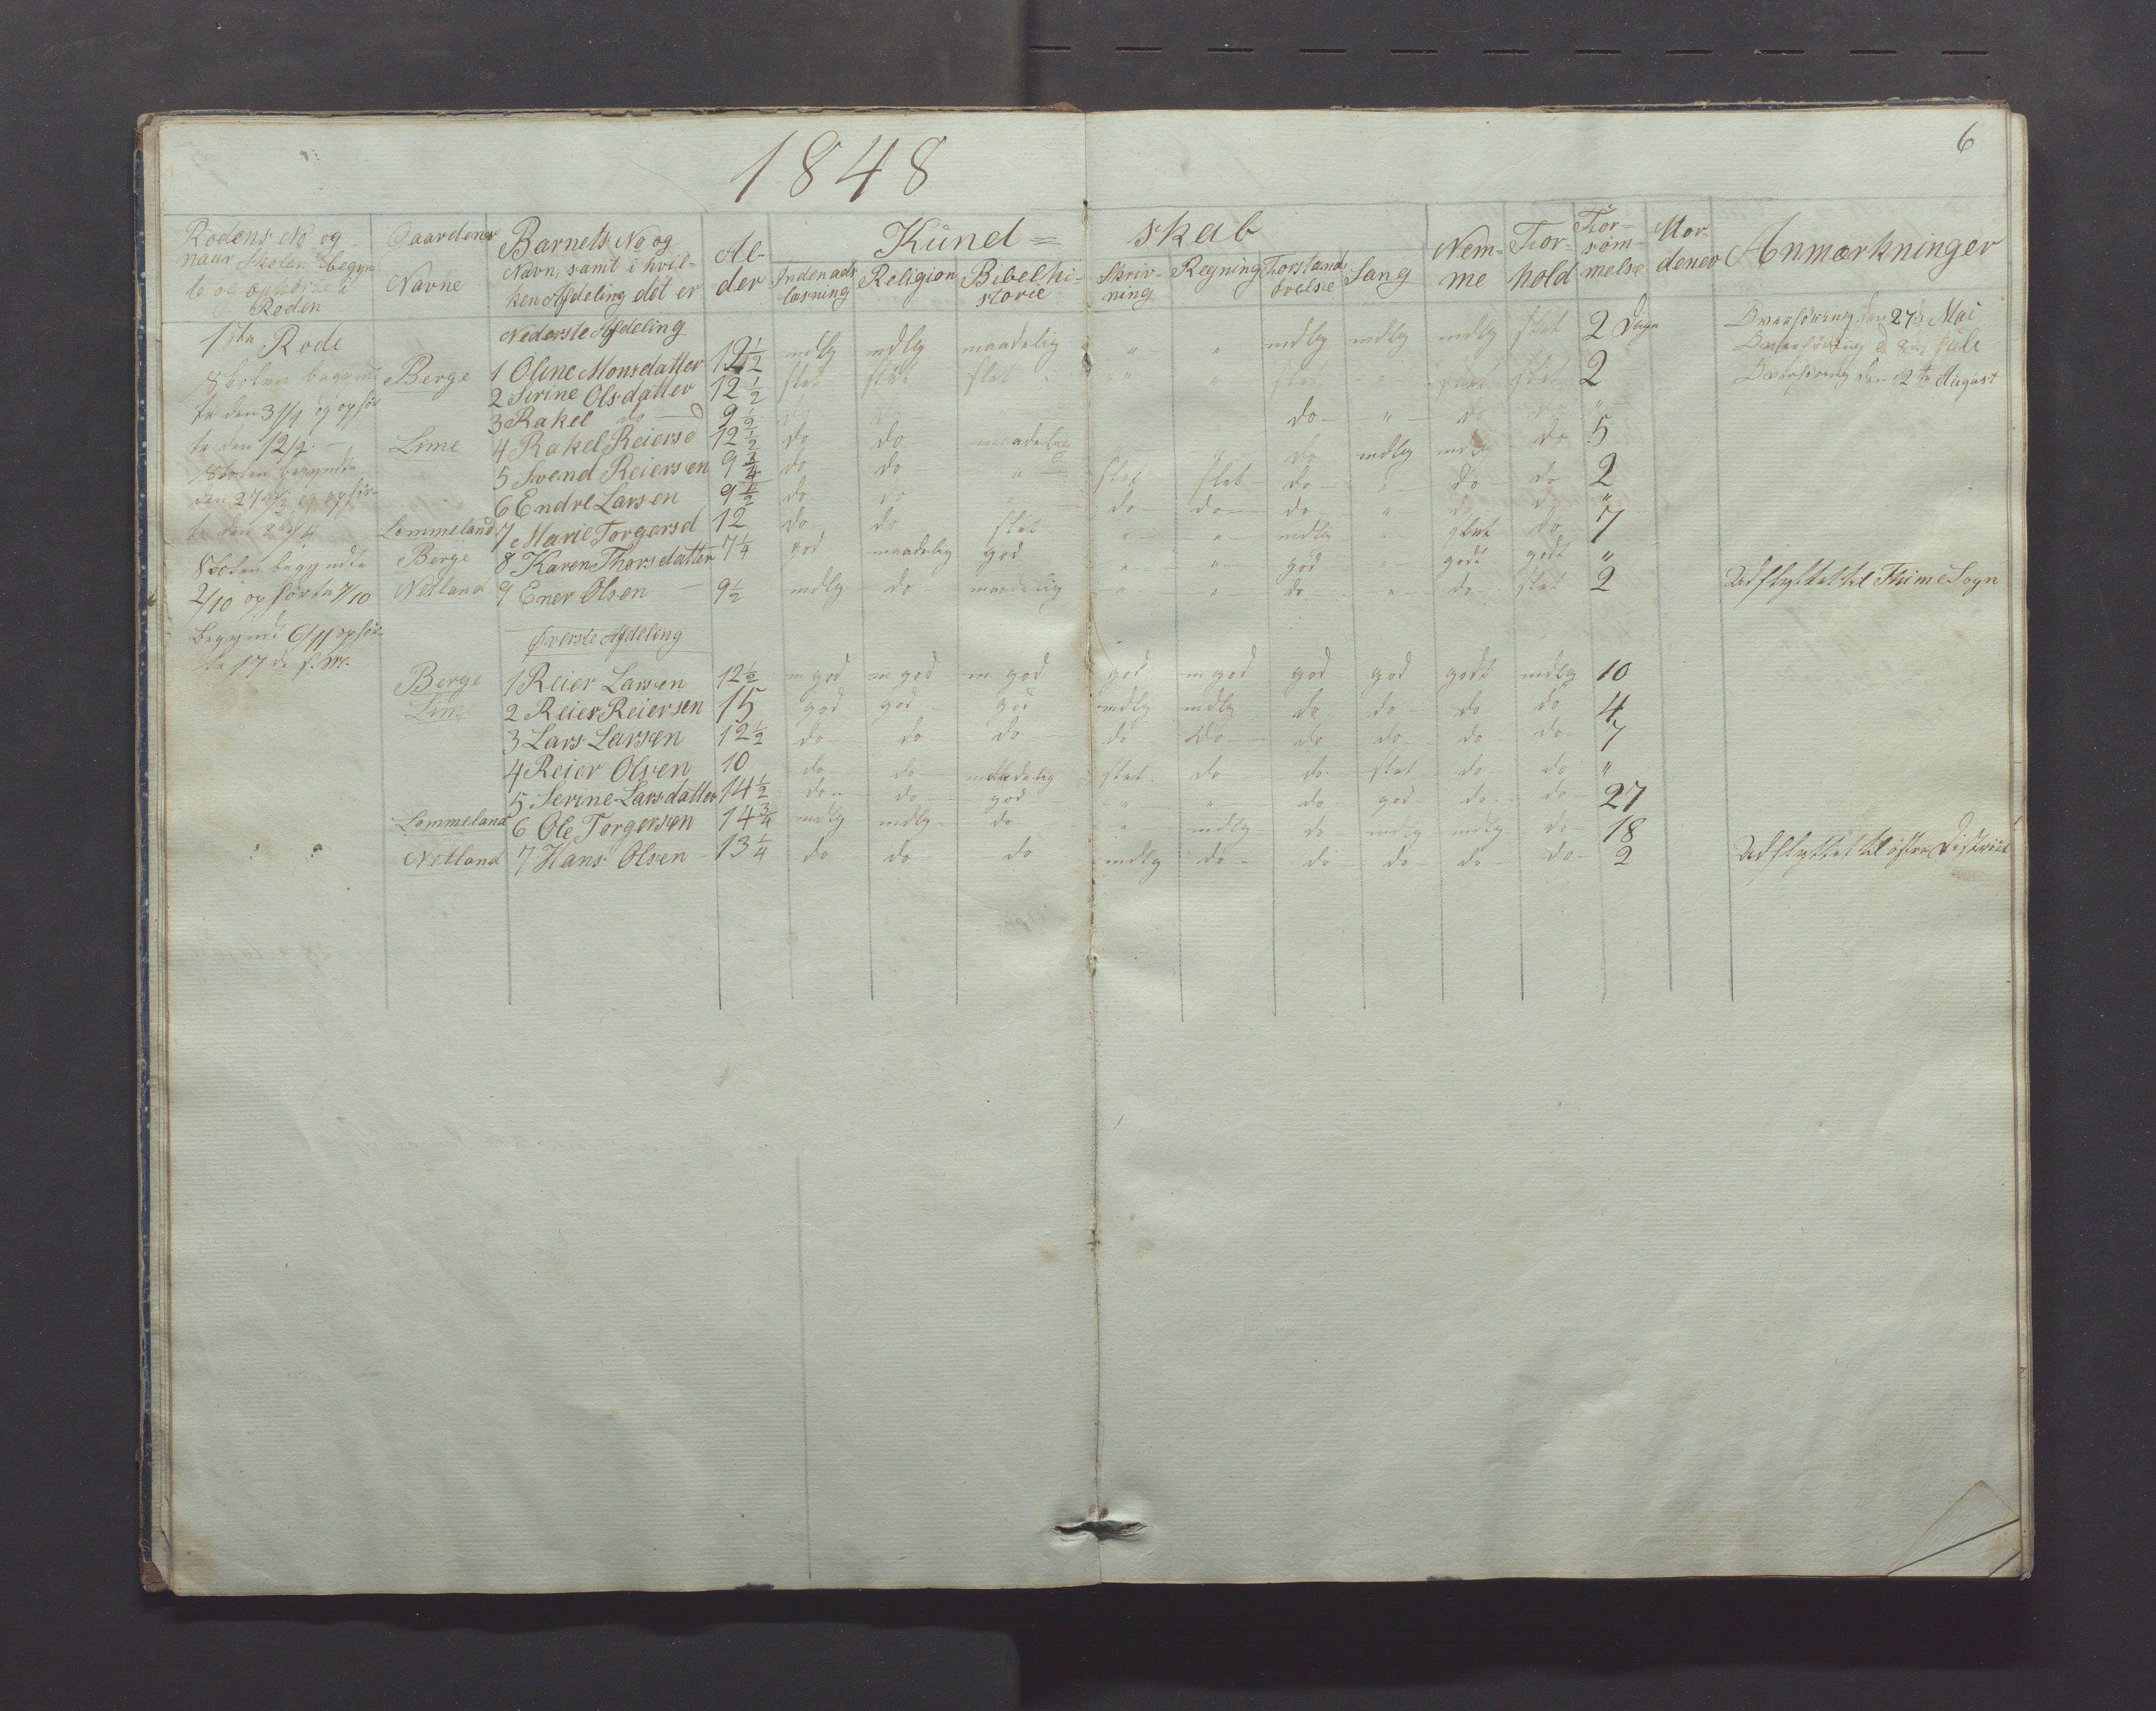 6
1848
Rodens No og
naar Skolen begyn
te og ophørte i
Roden
Gaardenes
Navne
Barnets No og
Navn, samt i hvil-
ken Afdeling det er
Al-
der
Kund=
skab
Indenads
læsning
Religion
Bibelhi-
storie
Skriv-
ning
Regning
Forstands
øvelse
Sang
Nem-
me
For-
hold
For-
søm-
melse
Mor-
dener
Anmærkninger
1ste Rode
Skolen begynd-
te den 31/1 og ophør
te den 12/2.
Skolen begyndte
den 27 og ophør-
te den
Skolen begyndte
2/10 ophørte 7/10
begyndt 6/11 ophør-
te 17de s. M.
Nederste Afdeling
Berge 1 Oline Monsdatter 12 1/2 mdlg mdlg maadelig " " mdlg mdlg mdlg slet 2 Dage
2 Sirine Olsdatter 12 1/2 slet slet slet " " slet slet slet 2
3 Rakel do 9 1/2 do do do " do do "
Lime 4 Rakel Reiersd 12 1/2 do do maadelig do mdlg mdlg do 5
5 Svend Reiersen 9 3/4 do do " slet slet do " do do 2
6 Endre Larsen 9 1/2 do do do do do " do do "
Lommeland 7 Marie Torgersd 12 do do slet " " mdlg " slet do 7
Berge 8 Karen Thorsdatter 7 1/4 god maadelig god " " god " godt godt "
Netland 9 Ener Olsen 9 1/2 mdlg do maadelig " " do " do slet 2 Udflyttet til Thime Sogn
Øverste Afdeling
Berge 1 Reier Larsen 12 1/2 m god m god m god god m god god god godt mdlg 10
Lime 2 Reier Reiersen 15 god god god mdlg mdlg do do do do 4
3 Lars Larsen 12 1/2 do do do do do do do do do 7
4 Reier Olsen 10 do do maadelig slet do do slet do do "
5 Serine Larsdatter 14 1/2 do do god " " do god do do 27
Lommeland 6 Ole Torgersen 14 3/4 mdlg mdlg do " mdlg do mdlg mdlg do 18
Netland 7 Hans Olsen 13 1/4 do do do mdlg do do do do do 2 Udflyttet til østre District
Overhøring den 27de Mai
Overhøring d 8de Juli
Overhøring den 12te August